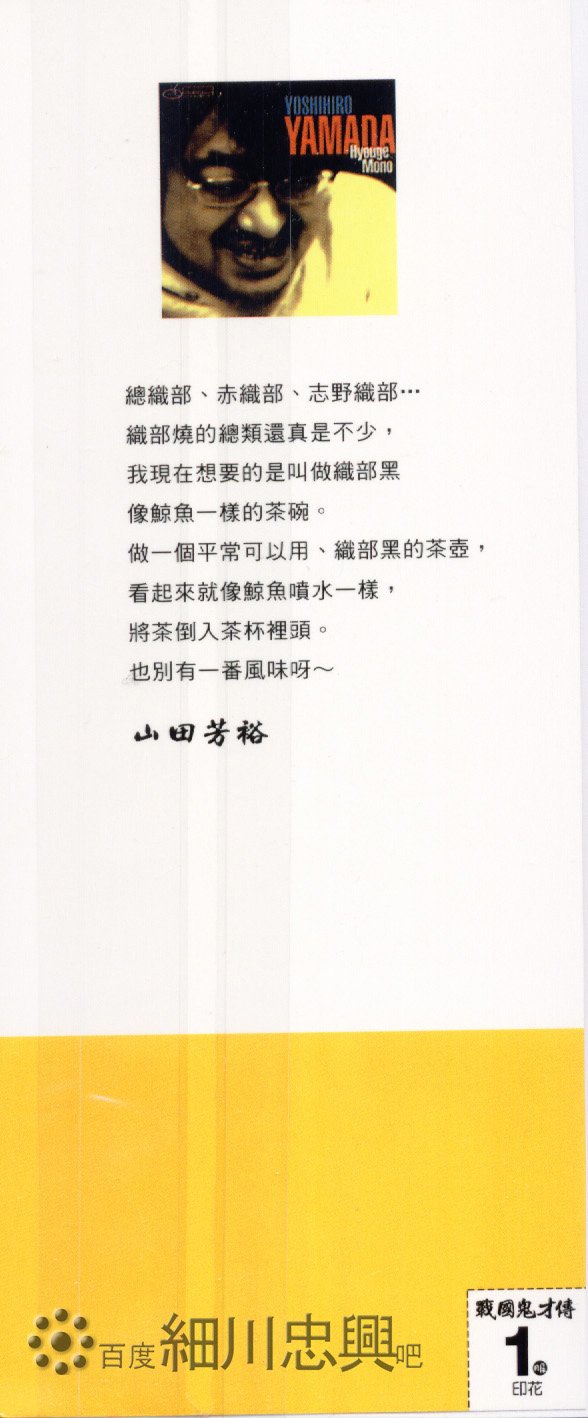 YOSHIHIRO
YAMADA
Hyouge
Mono
總織部、赤織部、志野織部⋯
織部燒的總類還真是不少，
我現在想要的是叫做織部黑
像鯨魚一樣的茶碗。
做一個平常可以用、織部黑的茶壺，
看起來就像鯨魚噴水一樣，
將茶倒入茶杯裡頭。
也別有一番風味呀～
山田芳裕
戰國鬼才傳
1
印花
百度細川忠興吧